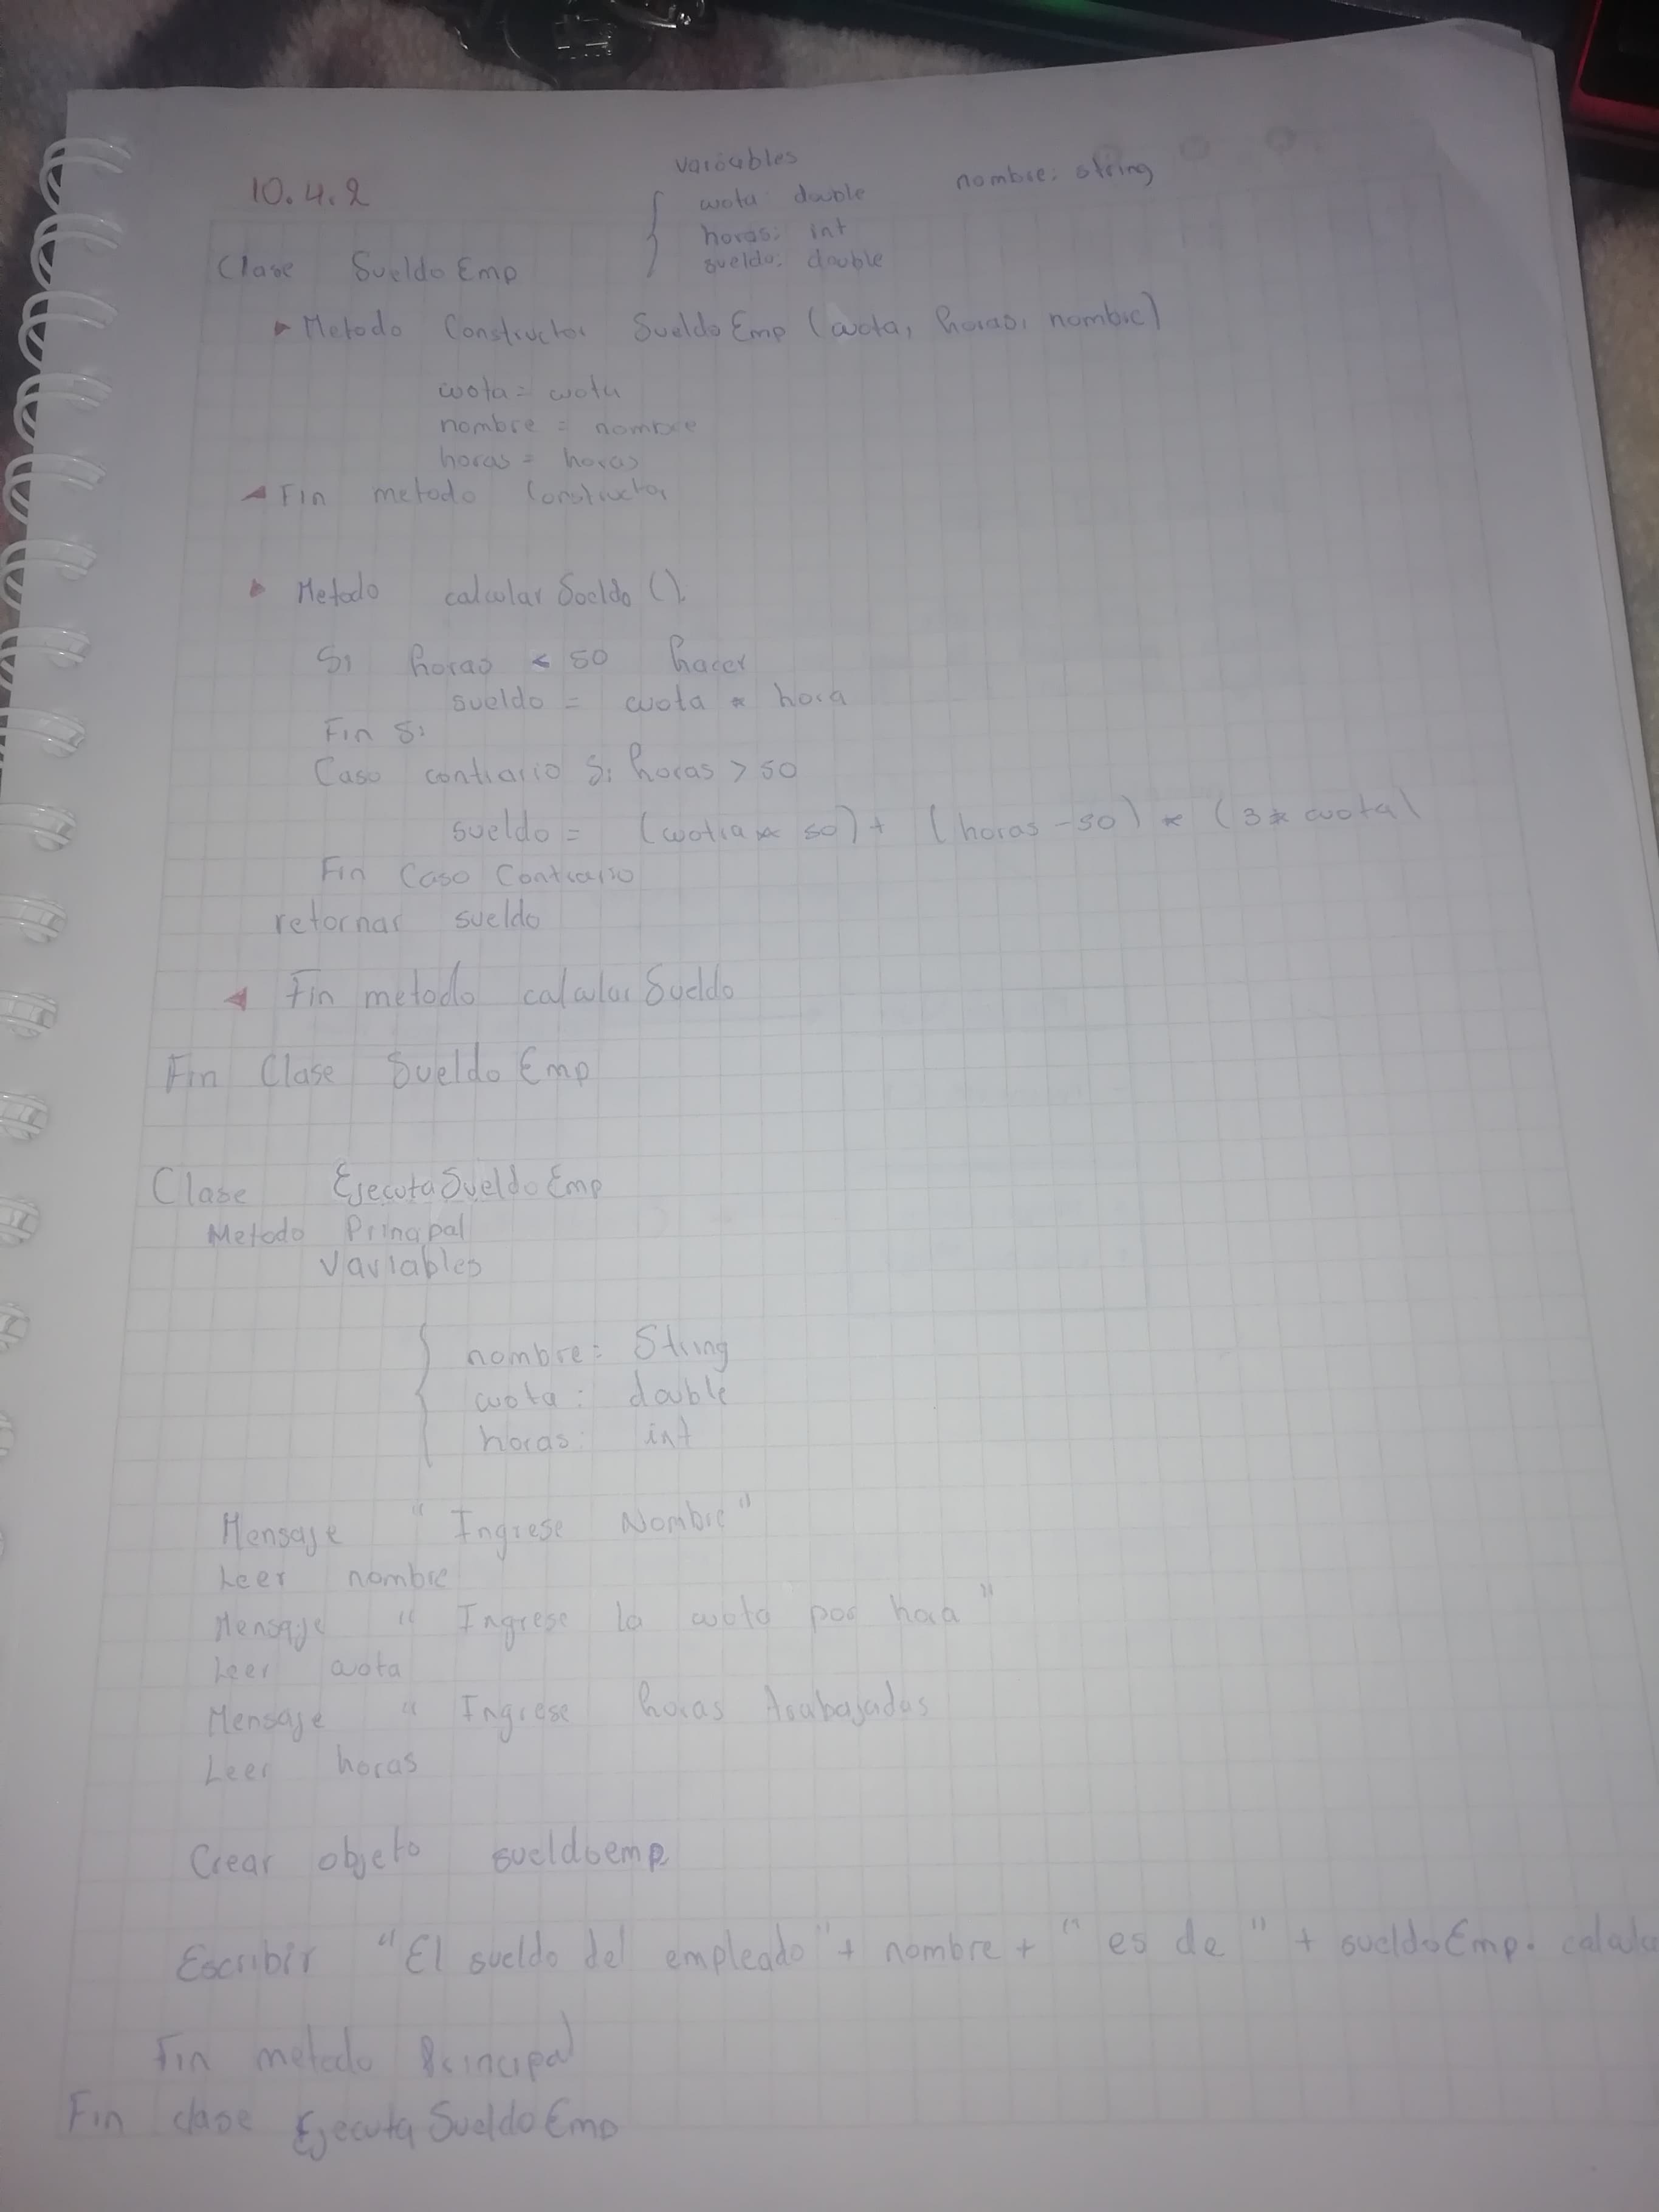 10.4.2
variables
cuota: double nombre: string
horas: int
sueldo: double
Clase SueldoEmp
Metodo Constructor SueldoEmp (cuota, horas, nombre)
cuota = cuota
nombre = nombre
horas = horas
Fin metodo Constructor
Metodo calcularSueldo ().
Si horas < 50 hacer
sueldo = cuota * hora
Fin Si
Caso contrario Si horas > 50
sueldo = (cuota * 50) + (horas - 50) * (3 * cuota)
Fin Caso Contrario
retornar sueldo
Fin metodo calcularSueldo
Fin Clase SueldoEmp
Clase EjecutaSueldoEmp
Metodo Principal
Variables
nombre: String
cuota: double
horas: int
Mensaje "Ingrese Nombre"
Leer nombre
Mensaje "Ingrese la cuota por hora"
Leer cuota
Mensaje "Ingrese horas trabajadas
Leer horas
Crear objeto sueldoemp
Escribir "El sueldo del empleado" + nombre + " es de " + sueldoEmp. calcula
Fin metodo Principal
Fin clase EjecutaSueldoEmp